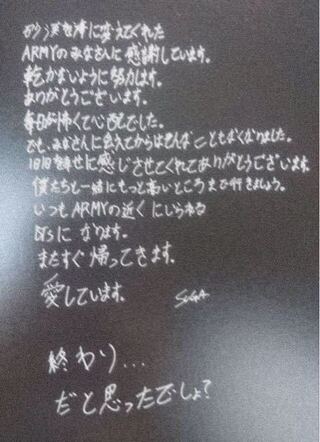 涙を海に変えてくれた
ARMYのみなさんに感謝しています。
乾かないように努力します。
ありがとうございます。
毎日が怖くて心配でした。
でも、みなさんに出会えてからはそんなこともなくなりました。
1日1日を幸せに感じさせてくれてありがとうございます。
僕たちと一緒にもっと高いところまで行きましょう。
いつもARMYの近くにいられる
BTSになります。
またすぐ帰ってきます。
愛しています。 SUGA
終わり...
だと思ったでしょ?